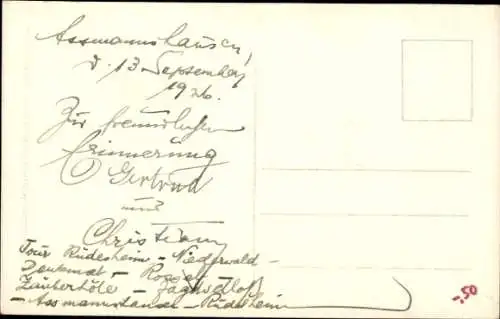 Assmannshausen,
d. 13. September
1926.
Zur freundlichen
Erinnerung
Gertrud
und
Christian
Tour Rüdesheim - Niederwald-
Denkmal - Rossel -
Zauberhöle - Jagdschloß
- Assmannshausen - Rüdesheim
-,50